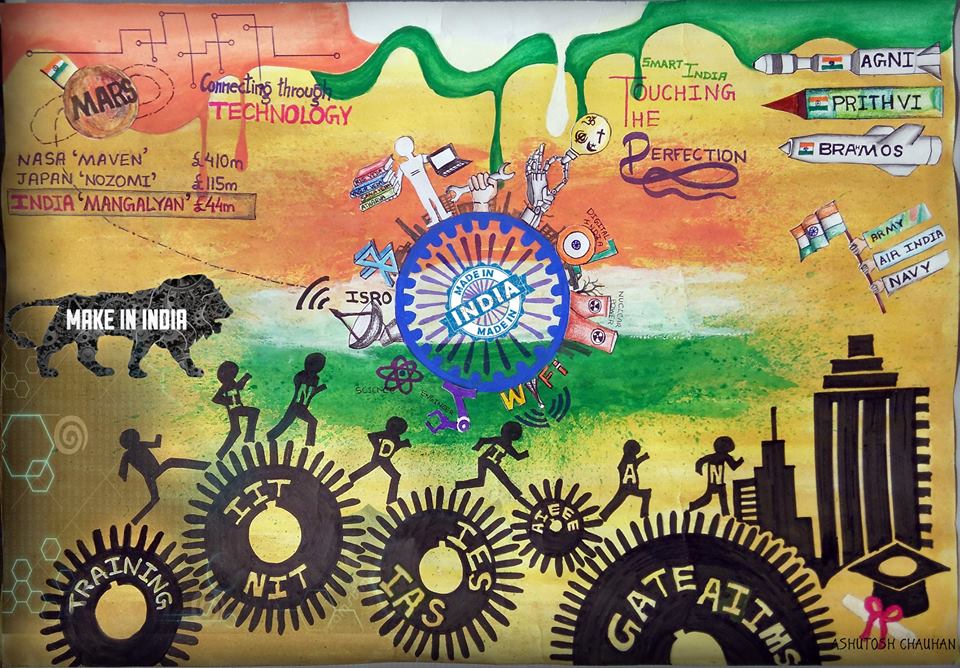 MARS
Connecting through
TECHNOLOGY
NASA 'MAVEN' £410m
JAPAN 'NOZOMI' £115m
INDIA 'MANGALYAN' £44m
SMART INDIA
TOUCHING
THE
PERFECTION
AGNI
PRITHVI
BRAMOS
ARMY
AIR INDIA
NAVY
DIGITAL INDIA
NUCLEAR POWER
ISRO
MADE IN
INDIA
MADE IN
SCIENCE
ENGINEER
WiFi
MAKE IN INDIA
I N D I A N
TRAINING
IIT
NIT
IES
IAS
AIEEE
GATE AIIMS
ASHUTOSH CHAUHAN